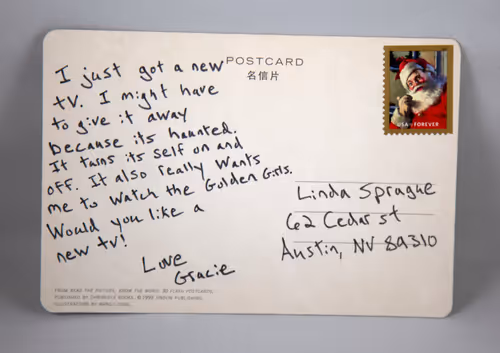 POSTCARD
名信片
I just got a new
tv. I might have
to give it away
because its haunted.
It turns its self on and
off. It also really wants
me to watch the Golden Girls.
Would you like a
new tv!
Love
Gracie
USA FOREVER
Linda Sprague
62 Cedar st
Austin, NV 89310
FROM READ THE PICTURE, DRAW THE WORDS: 30 FLASH POSTCARDS,
PUBLISHED BY CHRONICLE BOOKS. © 1992